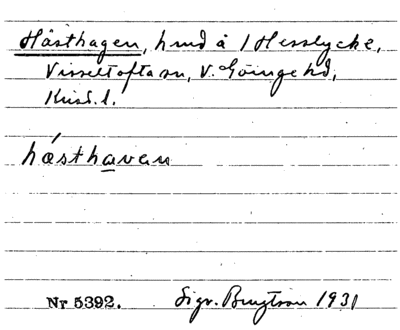 Hästhagen, hmd å 1 Hesslycke,
Visseltofta sn, V. Göinge hd,
Krist. l.
hásthavan
Nr 5392. Sigv. Bengtson 1931